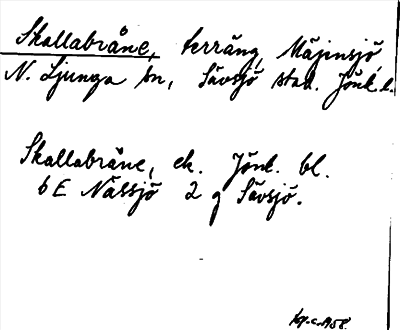 Skallabråne, terräng, Mäjensjö,
N. Ljunga sn, Sävsjö stad. Jönk. l.
Skallabråne, ek. Jönk. bl.
6 E Nässjö 2 g Sävsjö.